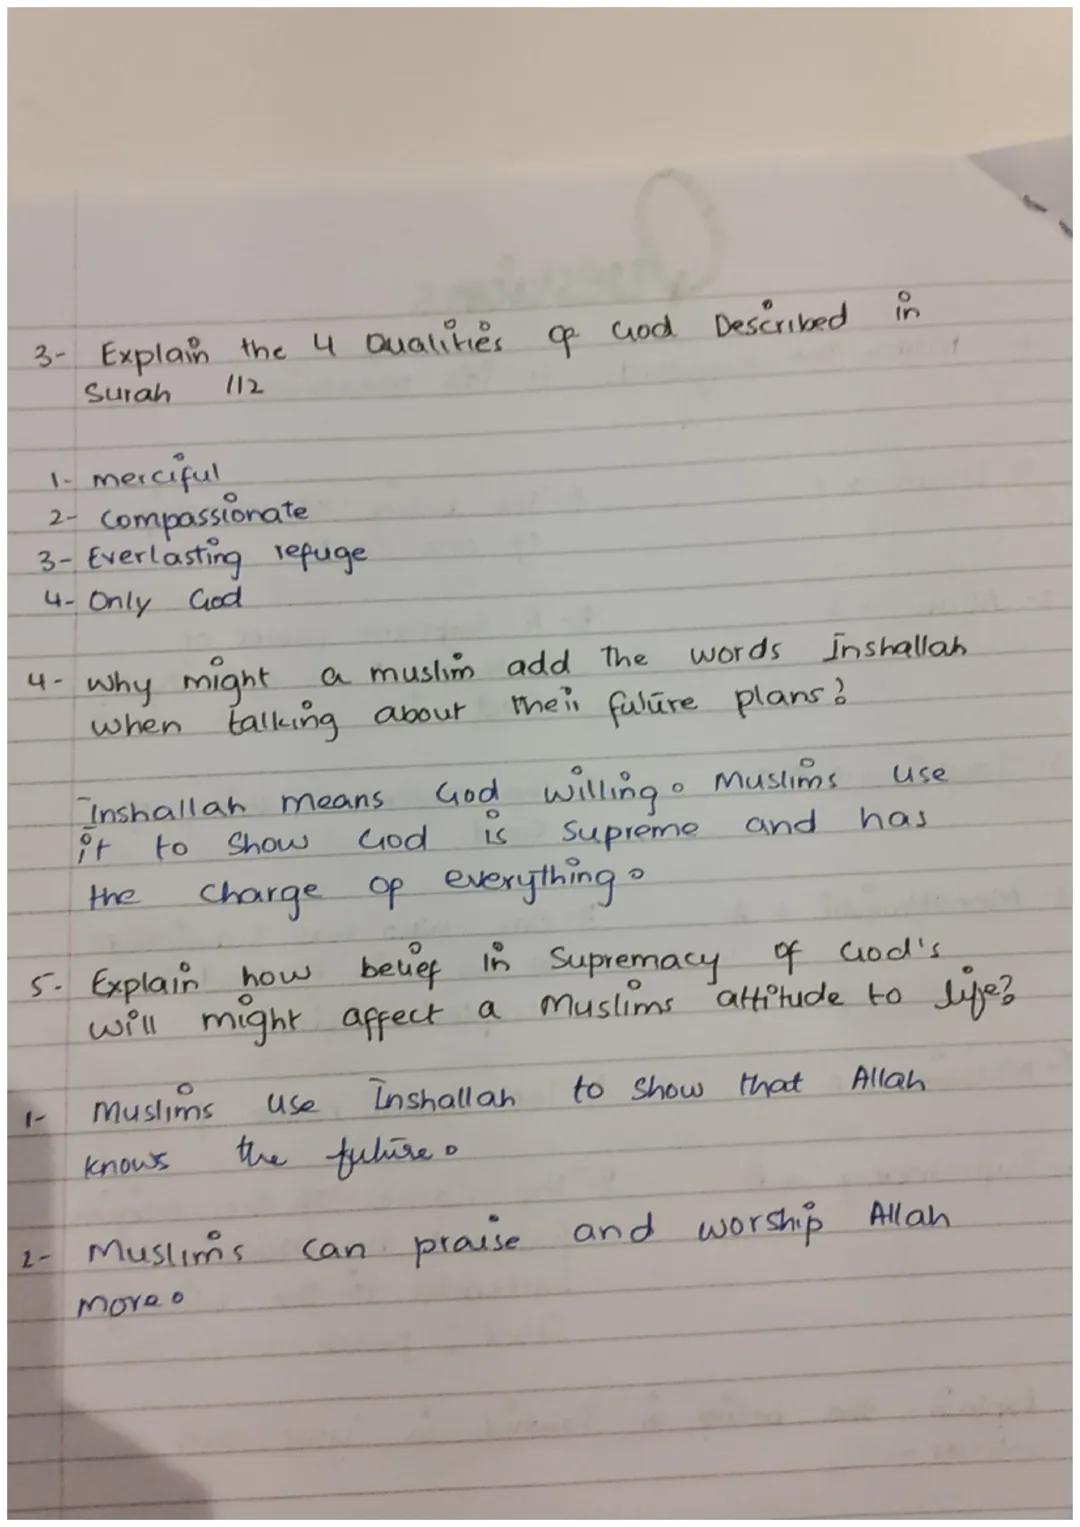 3- Explain the 4 Qualities of God Described in
Surah 112
1- merciful
2- Compassionate
3- Everlasting refuge
4- Only God
4- Why might a muslim add the words Inshallah
when talking about their future plans?
Inshallah means God willing. Muslims use
it to show God is Supreme and has
the charge of everything.
5- Explain how belief in Supremacy of God's
will might affect a Muslims attitude to life?
1- Muslims use Inshallah to show that Allah
knows the future.
2- Muslims can praise and worship Allah
more.